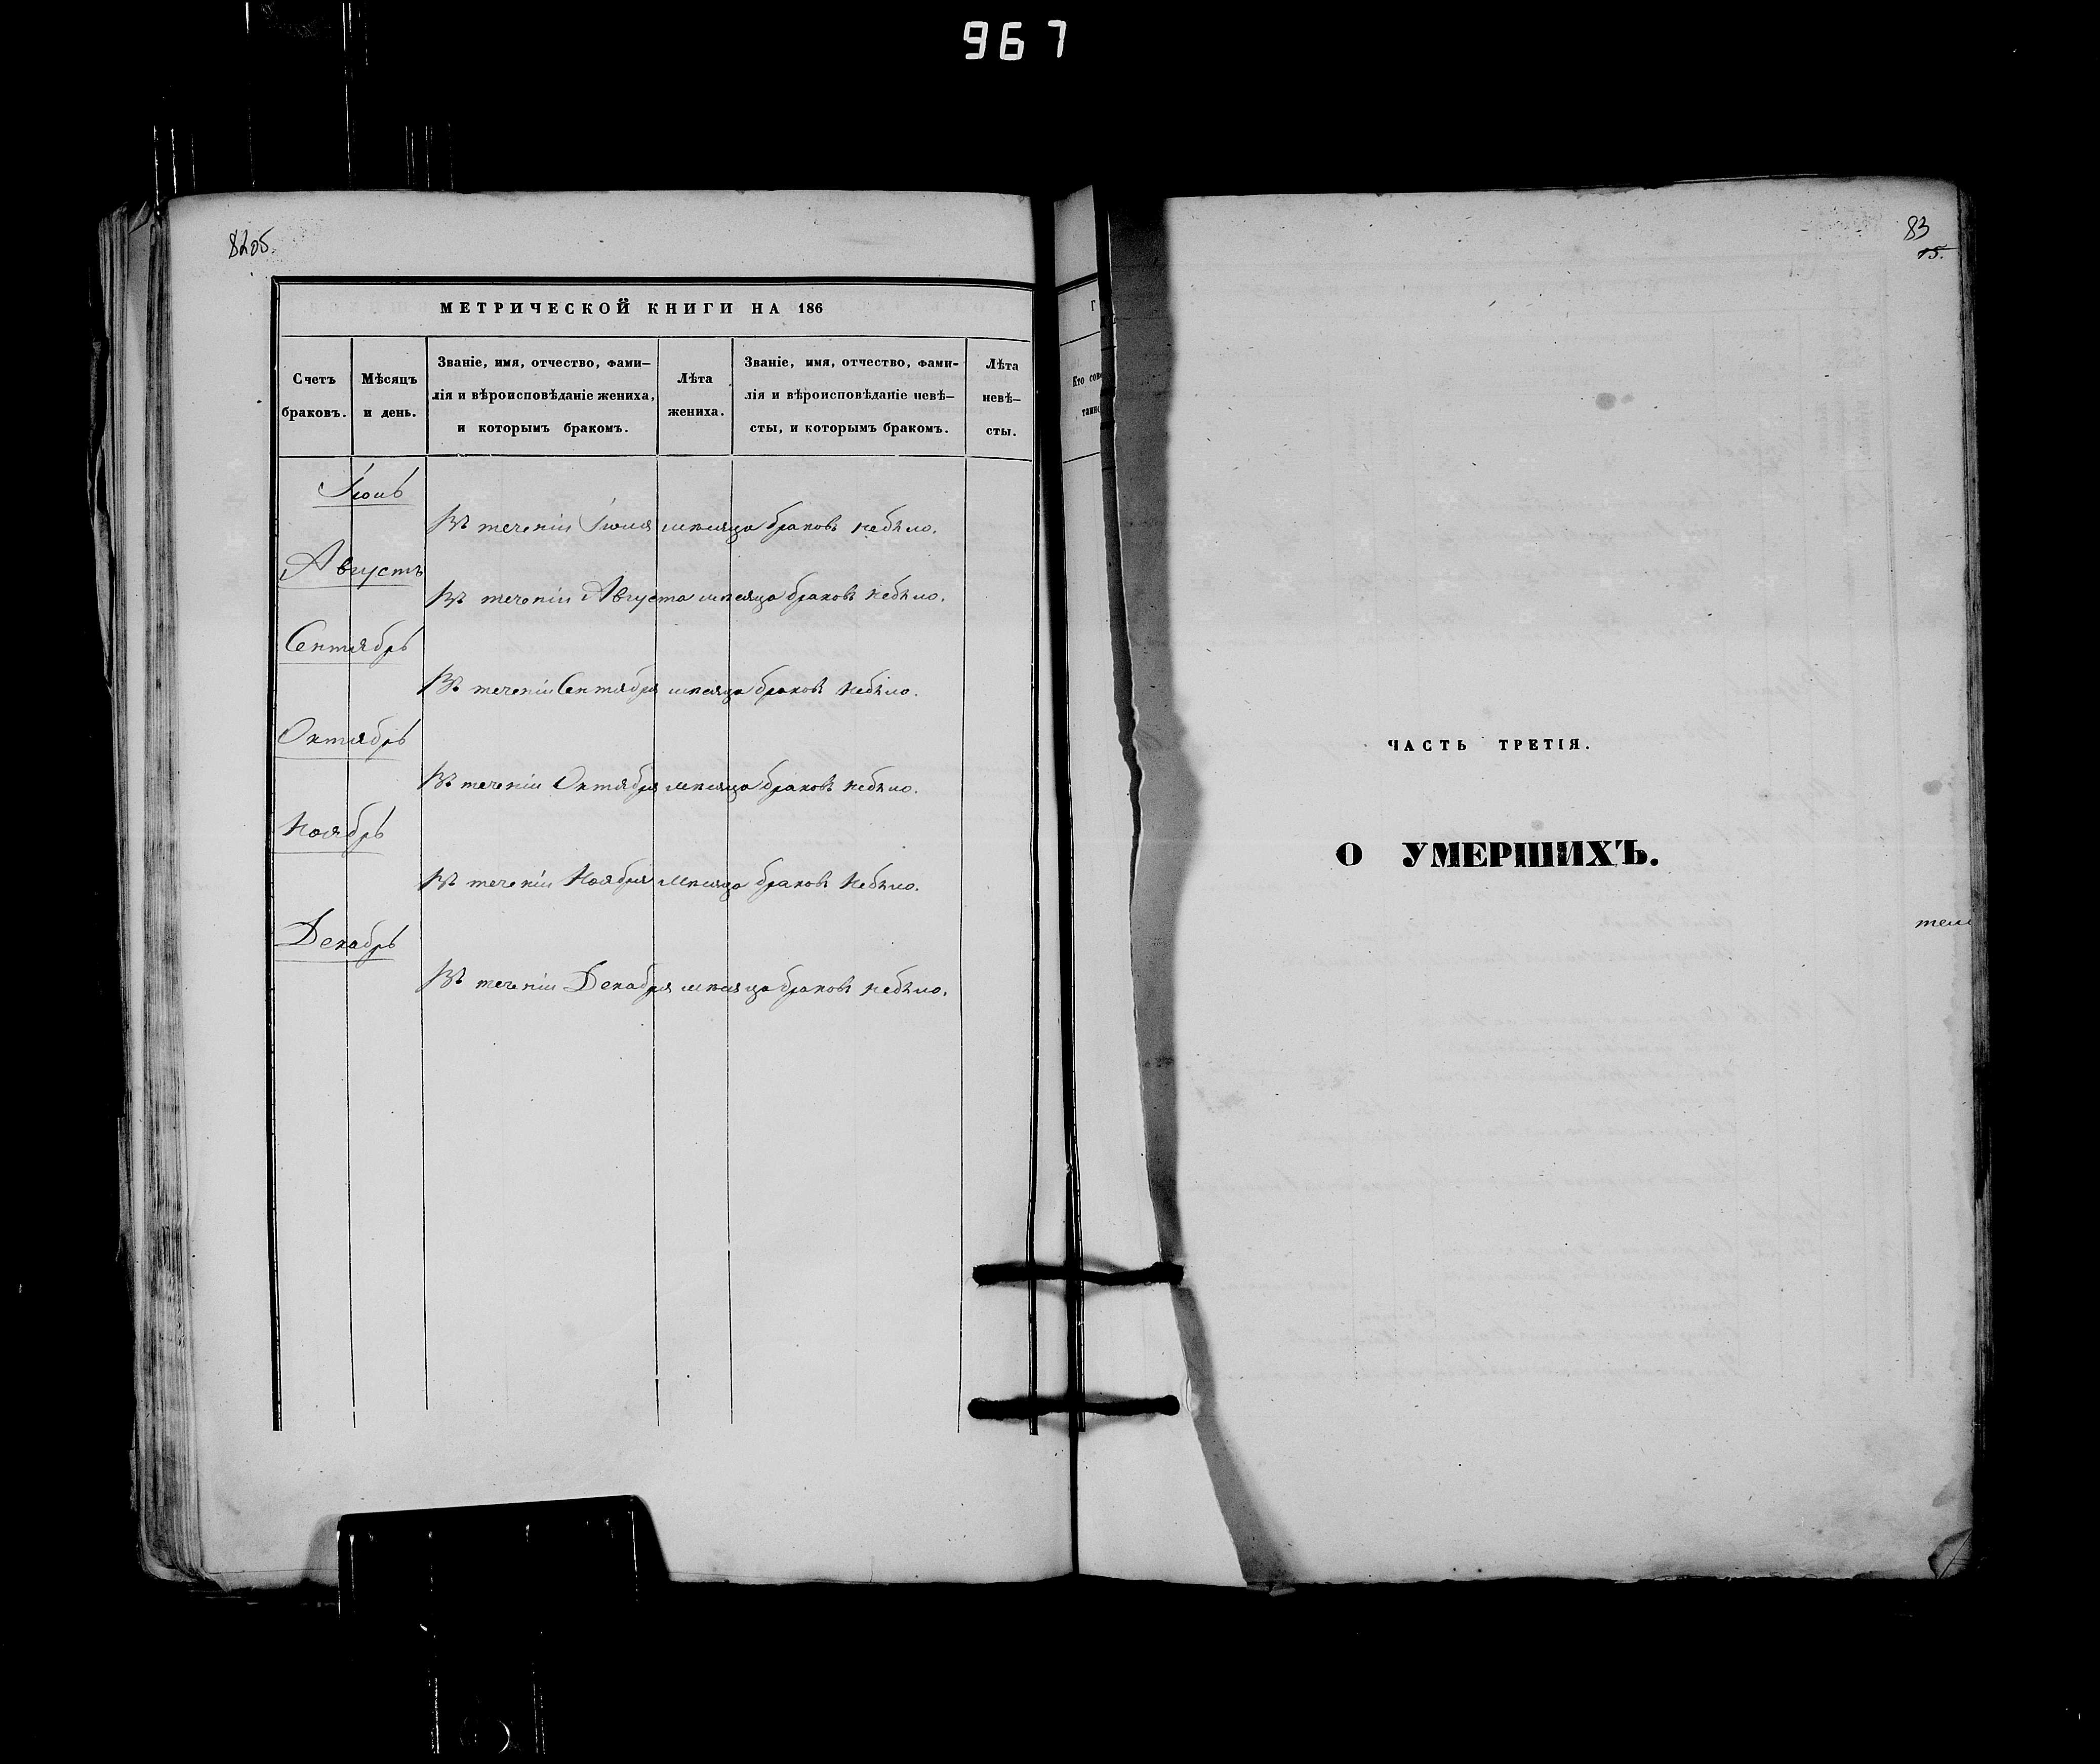 967
82об.
МЕТРИЧЕСКОЙ КНИГИ НА 186
Счетъ браковъ.
Мѣсяцъ и день.
Званіе, имя, отчество, фами-
лія и вѣроисповѣданіе жениха,
и которымъ бракомъ.
Лѣта
жениха.
Званіе, имя, отчество, фами-
лія и вѣроисповѣданіе невѣ-
сты, и которымъ бракомъ.
Лѣта
невѣ-
сты.
Іюль
Въ теченіи Іюля мѣсяца браковъ небыло.
Августъ
Въ теченіи Августа мѣсяца браковъ небыло.
Сентябрь
Въ теченіи Сентября мѣсяца браковъ небыло.
Октябрь
Въ теченіи Октября мѣсяца браковъ небыло.
Ноябрь
Въ теченіи Ноября мѣсяца браковъ небыло.
Декабрь
Въ теченіи Декабря мѣсяца браковъ небыло.
Г
Кто сов
таин
83
15.
ЧАСТЬ ТРЕТІЯ.
О УМЕРШИХЪ.